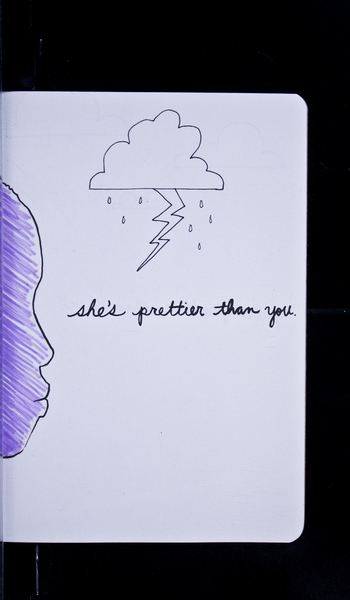 she's prettier than you.